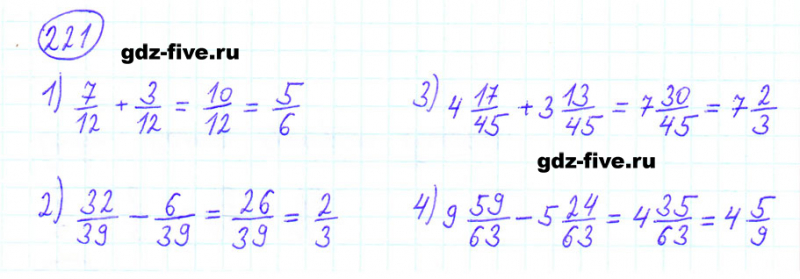 221
gdz-five.ru
1) 7/12 + 3/12 = 10/12 = 5/6
3) 4 17/45 + 3 13/45 = 7 30/45 = 7 2/3
gdz-five.ru
2) 32/39 - 6/39 = 26/39 = 2/3
4) 9 59/63 - 5 24/63 = 4 35/63 = 4 5/9